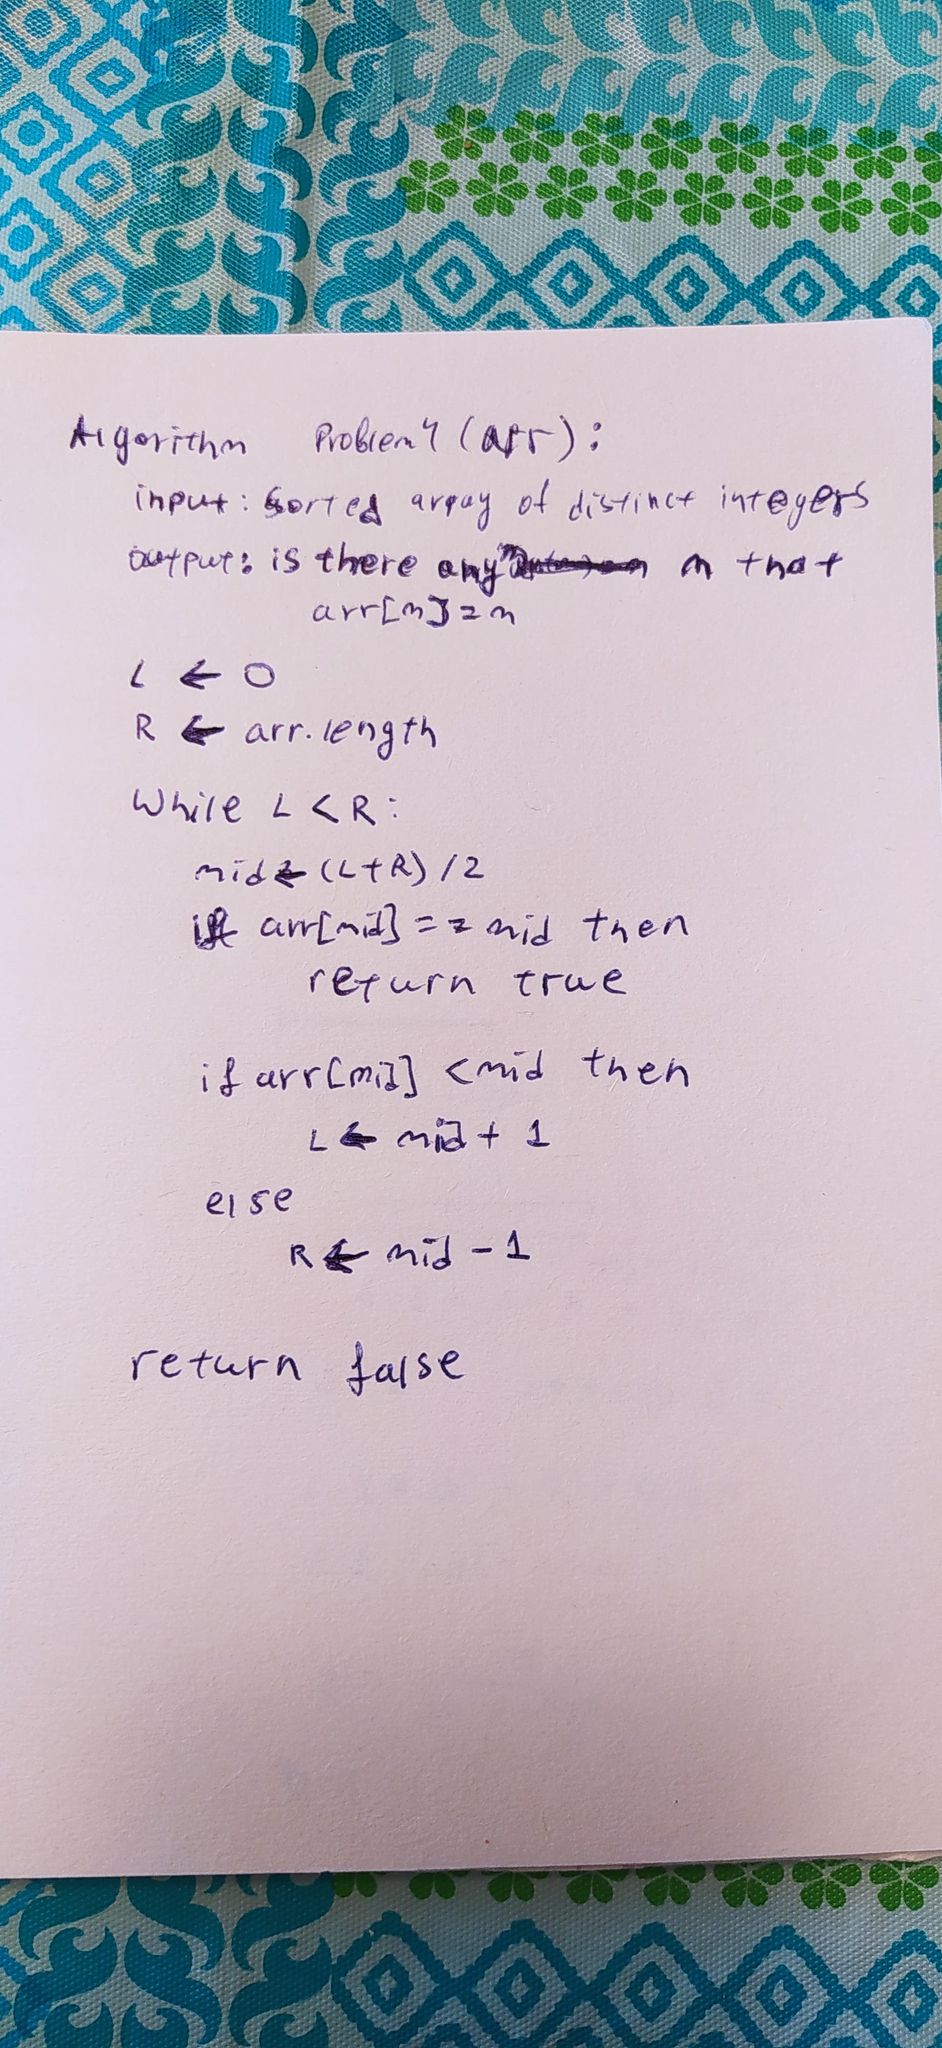 Algorithm Problem 4 (arr):
input: sorted array of distinct integers
output: is there any m that
arr[m]=m
L ← 0
R ← arr.length
While L < R:
mid ← (L+R) /2
if arr[mid] == mid then
return true
if arr[mid] < mid then
L ← mid + 1
else
R ← mid - 1
return false